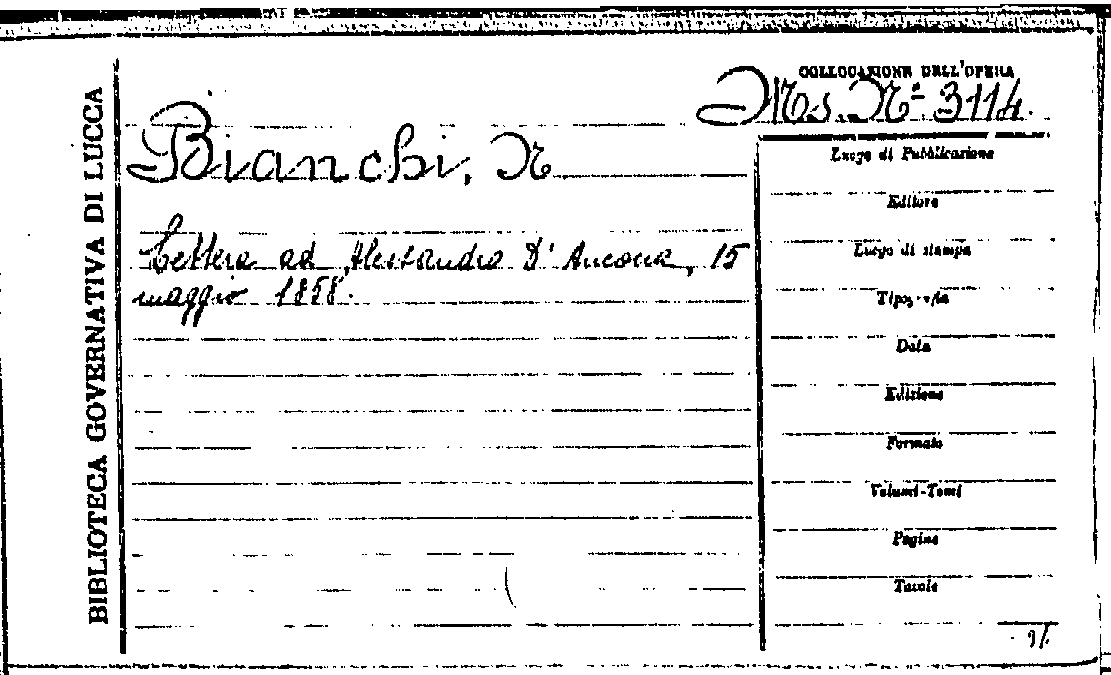 BIBLIOTECA GOVERNATIVA DI LUCCA
COLLOCAZIONE DELL'OPERA
Ms. N° 3114.
Bianchi, N
Lettera ad Alessandro D'Ancona, 15
maggio 1858.
Luogo di Pubblicazione
Editore
Luogo di stampa
Tipografia
Data
Edizione
Formato
Volumi-Tomi
Pagine
Tavole